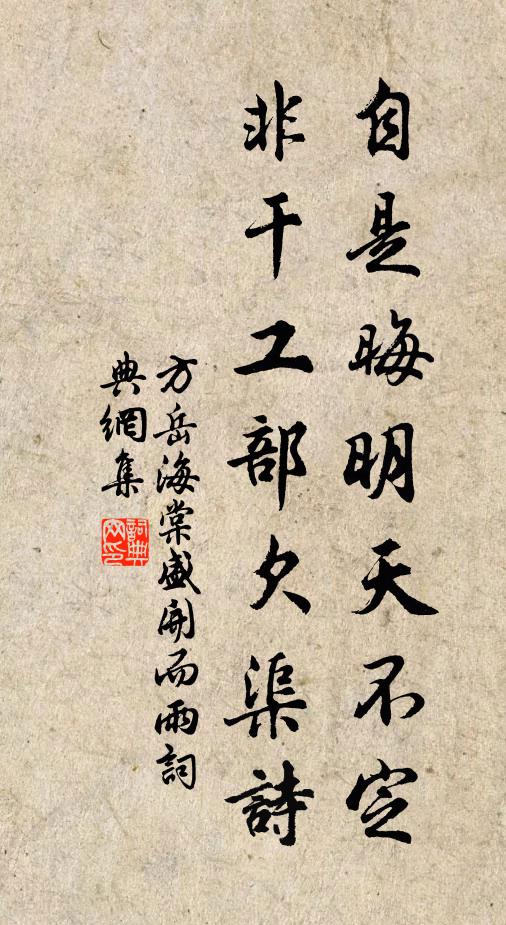 自是晦明天不定
非干工部欠渠詩
方岳海棠盛開而雨詞
典網集
詞典
网印